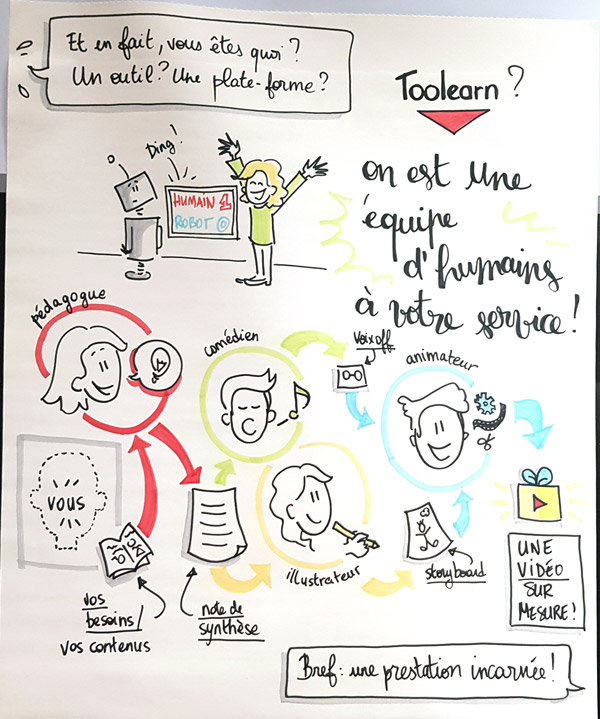 Et en fait, vous êtes quoi ?
Un outil ? Une plate-forme ?
Toolearn ?
Ding !
HUMAIN 1
ROBOT 0
on est une
équipe
d'humains
à votre service !
pédagogue
comédien
voix off
animateur
VOUS
illustrateur
storyboard
vos
besoins /
vos contenus
note de
synthèse
UNE
VIDÉO
SUR
MESURE !
Bref : une prestation incarnée !